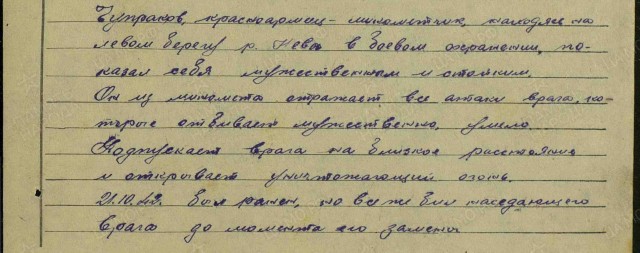 Чупраков, красноармеец-минометчик, находясь на
левом берегу р. Нева в боевом охранении, по-
казал себя мужественным и стойким.
Он из миномета отражает все атаки врага, ко-
торые отбивает мужественно, умело.
Подпускает врага на близкое расстояние
и открывает уничтожающий огонь.
21.10.42. был ранен, но все же бил наседающего
врага до момента его замены